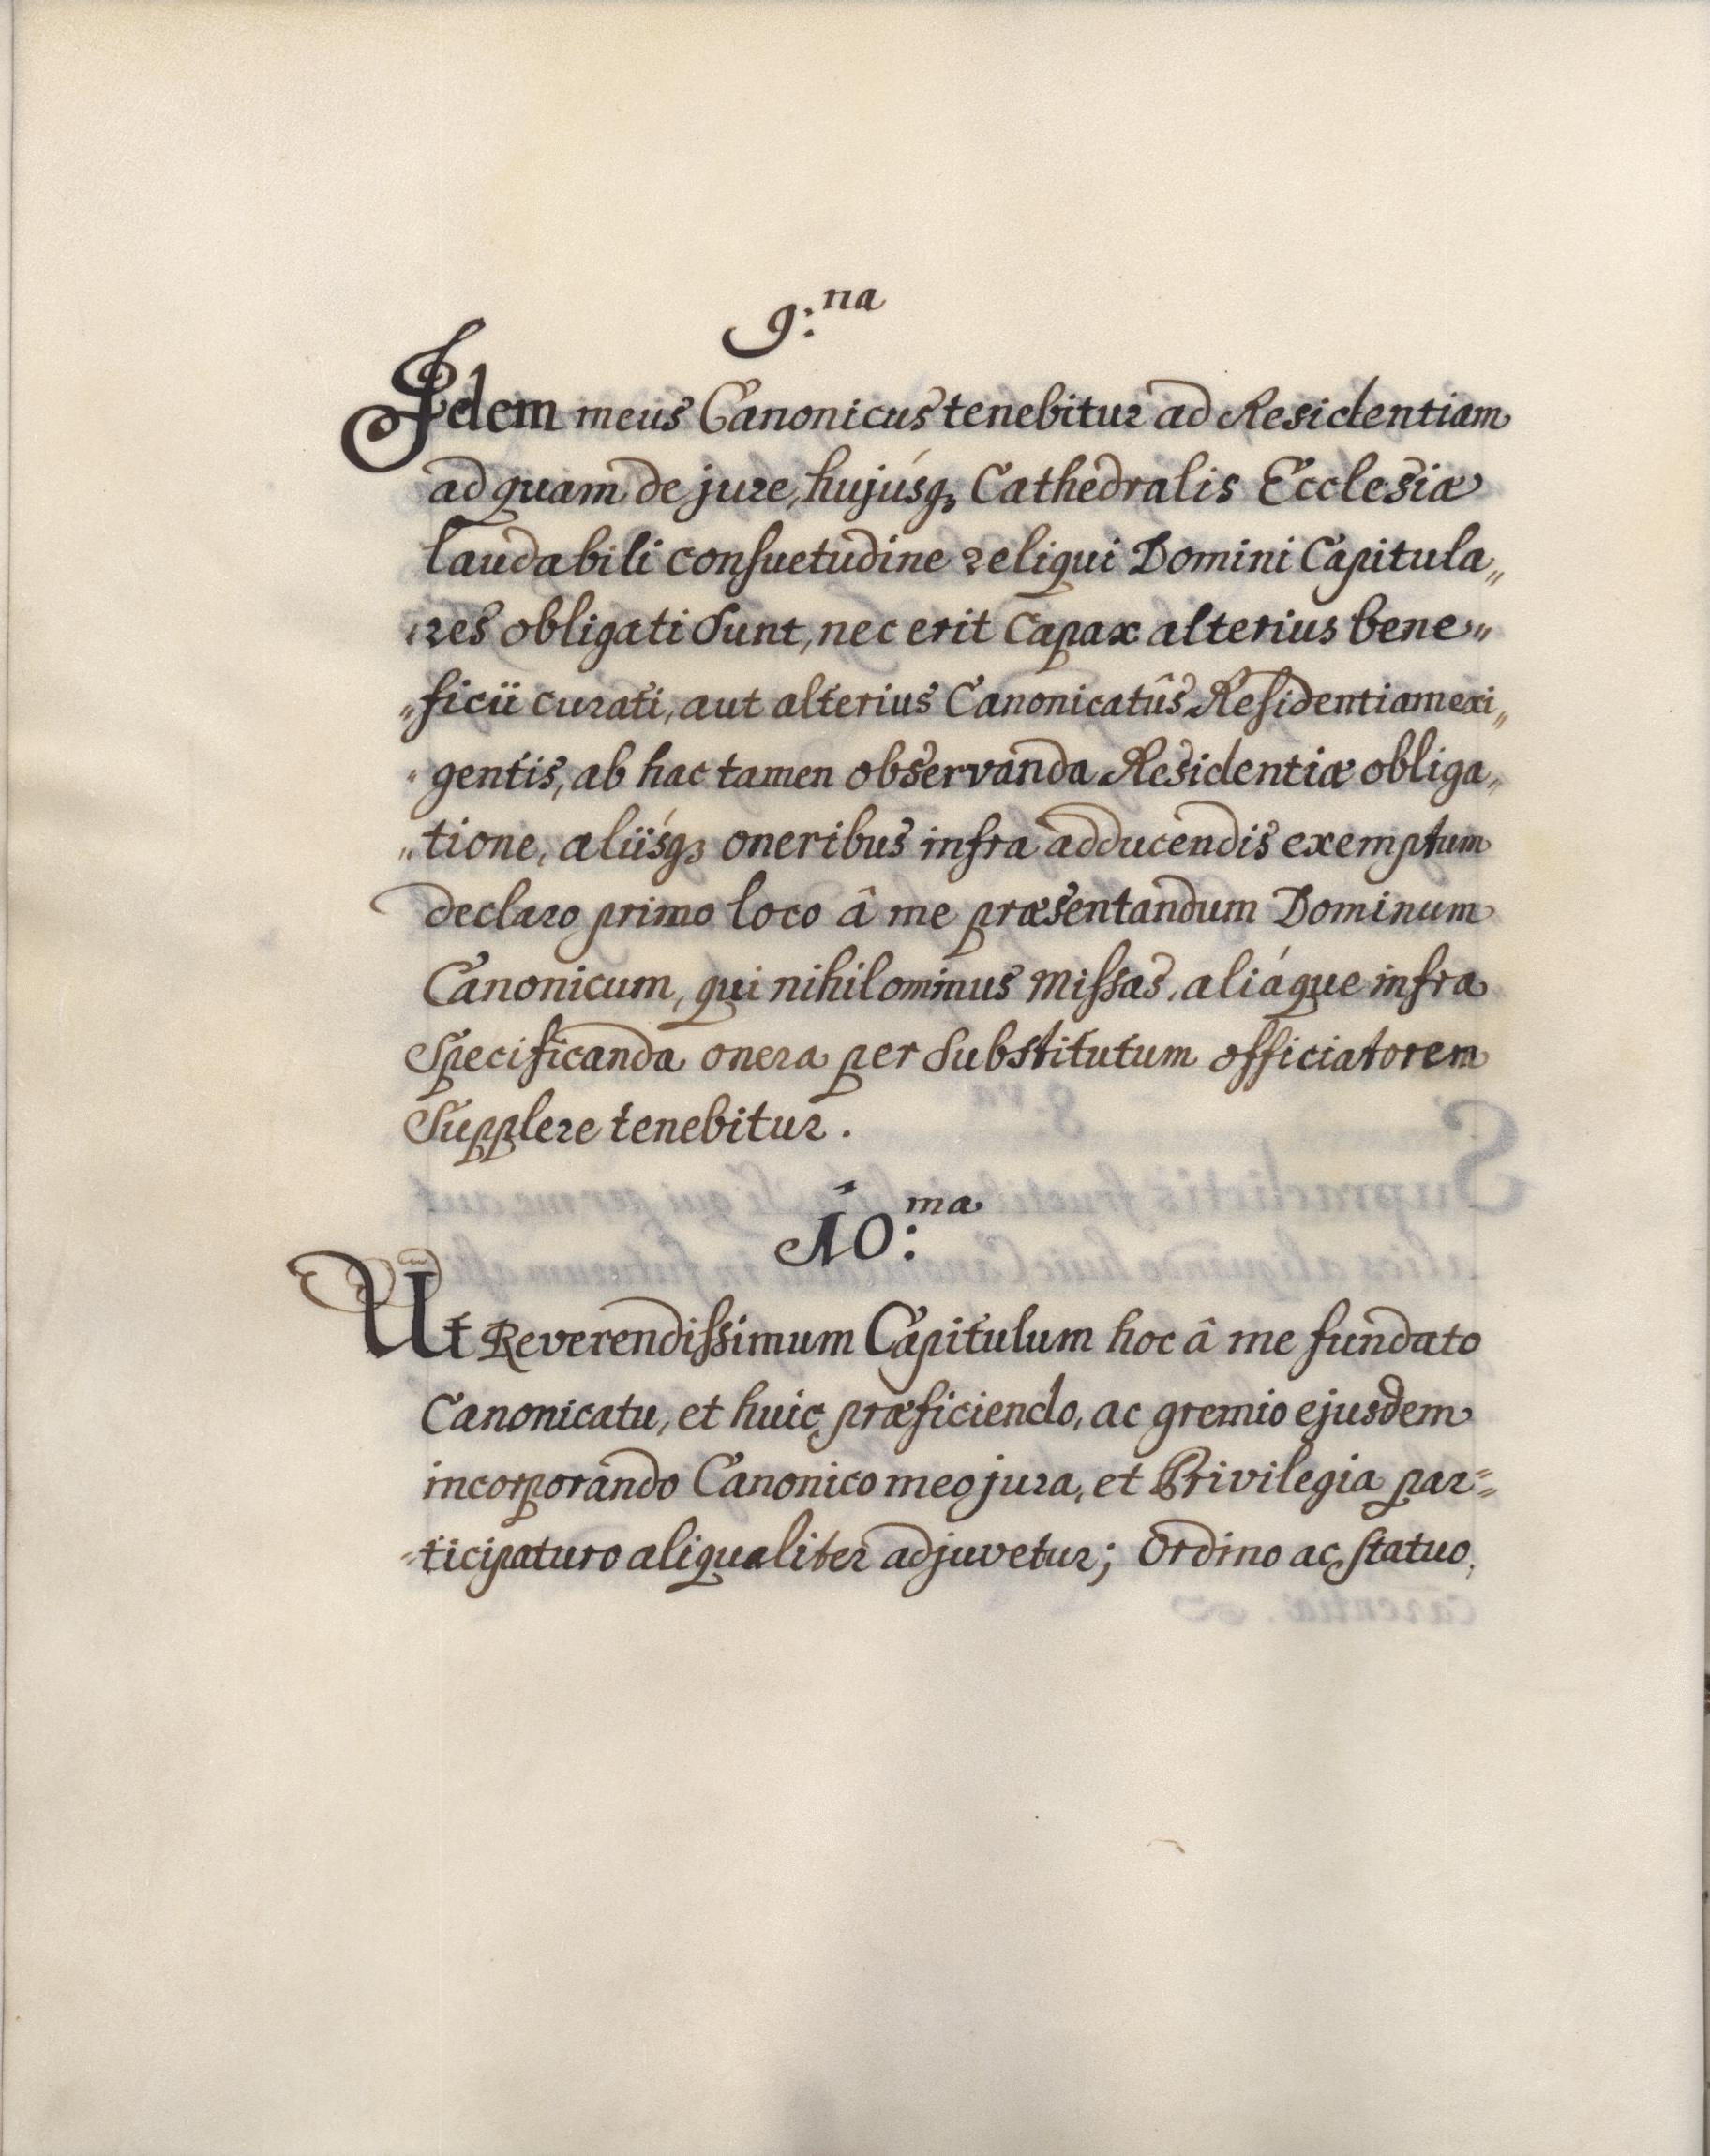 9:na
Idem meus Canonicus tenebitur ad Residentiam
ad quam de jure, hujúsq3 Cathedralis Ecclesiæ
laudabili consuetudine reliqui Domini Capitula„
„res obligati Sunt, nec erit Capax alterius bene„
„ficii curati, aut alterius Canonicatûs Residentiam exi„
„gentis, ab hac tamen observanda Residentiæ obliga„
„tione, aliísq3 oneribus infra adducendis exemptum
declaro primo loco â me præsentandum Dominum
Canonicum, qui nihilominus Missas, aliáque infra
Specificanda onera per Substitutum officiatorem
Supplere tenebitur.
10:ma
Ut Reverendissimum Capitulum hoc â me fundato
Canonicatu, et huic præficiendo, ac gremio ejusdem
incorporando Canonico meo jura, et Privilegia par=
=ticipaturo aliqualiter adjuvetur; Ordino ac statuo,